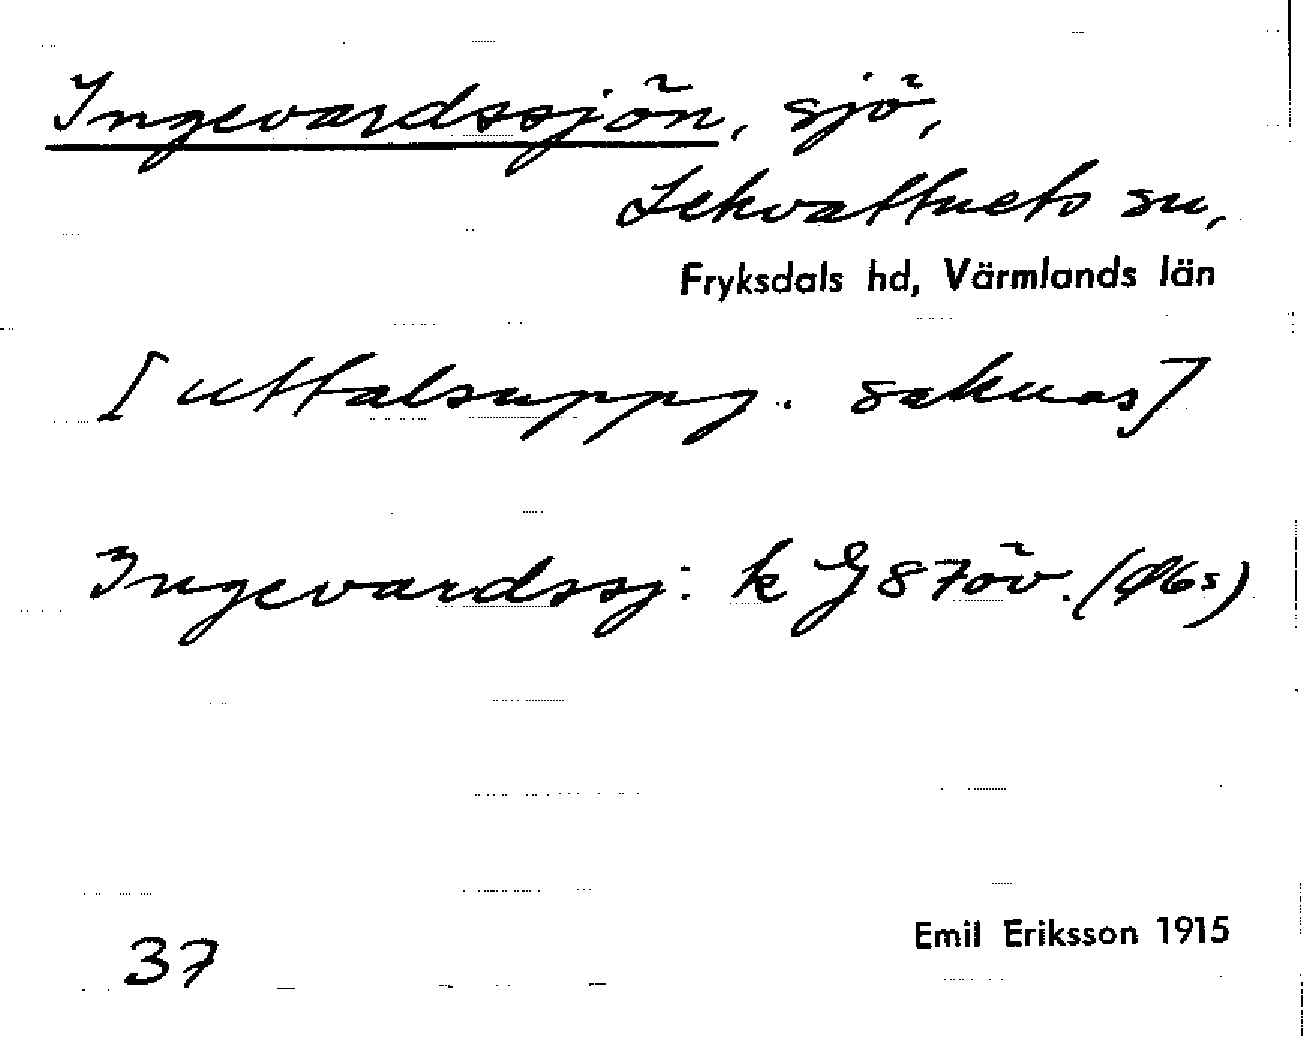 Ingevardssjön, sjö,
Lekvattnets sn,
Fryksdals hd, Värmlands län
[uttalsuppg. saknas]
Ingevardssj: k G 87öv.
37
Emil Eriksson 1915